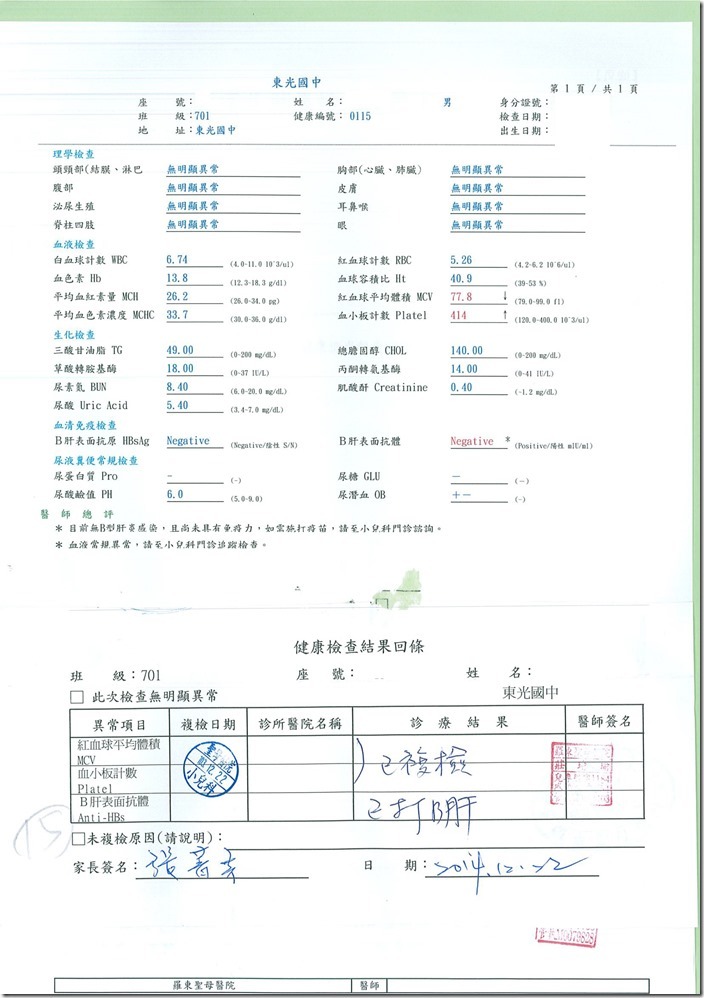 東光國中
第 1 頁 / 共 1 頁
座 號： 姓 名： 男 身分證號：
班 級：701 健康編號： 0115 檢查日期：
地 址：東光國中 出生日期：
理學檢查
頭頸部(結膜、淋巴 無明顯異常 胸部(心臟、肺臟) 無明顯異常
腹部 無明顯異常 皮膚 無明顯異常
泌尿生殖 無明顯異常 耳鼻喉 無明顯異常
脊柱四肢 無明顯異常 眼 無明顯異常
血液檢查
白血球計數 WBC 6.74 (4.0-11.0 10^3/ul) 紅血球計數 RBC 5.26 (4.2-6.2 10^6/ul)
血色素 Hb 13.8 (12.3-18.3 g/dl) 血球容積比 Ht 40.9 (39-53 %)
平均血紅素量 MCH 26.2 (26.0-34.0 pg) 紅血球平均體積 MCV 77.8 ↓ (79.0-99.0 fl)
平均血色素濃度 MCHC 33.7 (30.0-36.0 g/dl) 血小板計數 Platel 414 ↑ (120.0-400.0 10^3/ul)
生化檢查
三酸甘油脂 TG 49.00 (0-200 mg/dL) 總膽固醇 CHOL 140.00 (0-200 mg/dL)
草酸轉胺基酶 18.00 (0-37 IU/L) 丙酮轉氨基酶 14.00 (0-41 IU/L)
尿素氮 BUN 8.40 (6.0-20.0 mg/dL) 肌酸酐 Creatinine 0.40 (-1.2 mg/dL)
尿酸 Uric Acid 5.40 (3.4-7.0 mg/dL)
血清免疫檢查
B肝表面抗原 HBsAg Negative (Negative/陰性 S/N) B肝表面抗體 Negative * (Positive/陽性 mIU/ml)
尿液糞便常規檢查
尿蛋白質 Pro - (-) 尿糖 GLU － (－)
尿酸鹼值 PH 6.0 (5.0-9.0) 尿潛血 OB +－ (-)
醫 師 總 評
* 目前無B型肝炎感染，且尚未具有免疫力，如需施打疫苗，請至小兒科門診諮詢。
* 血液常規異常，請至小兒科門診追蹤檢查。
健康檢查結果回條
班 級：701 座 號： 姓 名：
□ 此次檢查無明顯異常 東光國中
異常項目 複檢日期 診所醫院名稱 診 療 結 果 醫師簽名
紅血球平均體積
MCV
血小板計數
Platel
已複檢
小兒科
B肝表面抗體
Anti-HBs
已打B肝
15
□未複檢原因(請說明)：
家長簽名： 日 期：2014.12.22
羅東聖母醫院 醫師